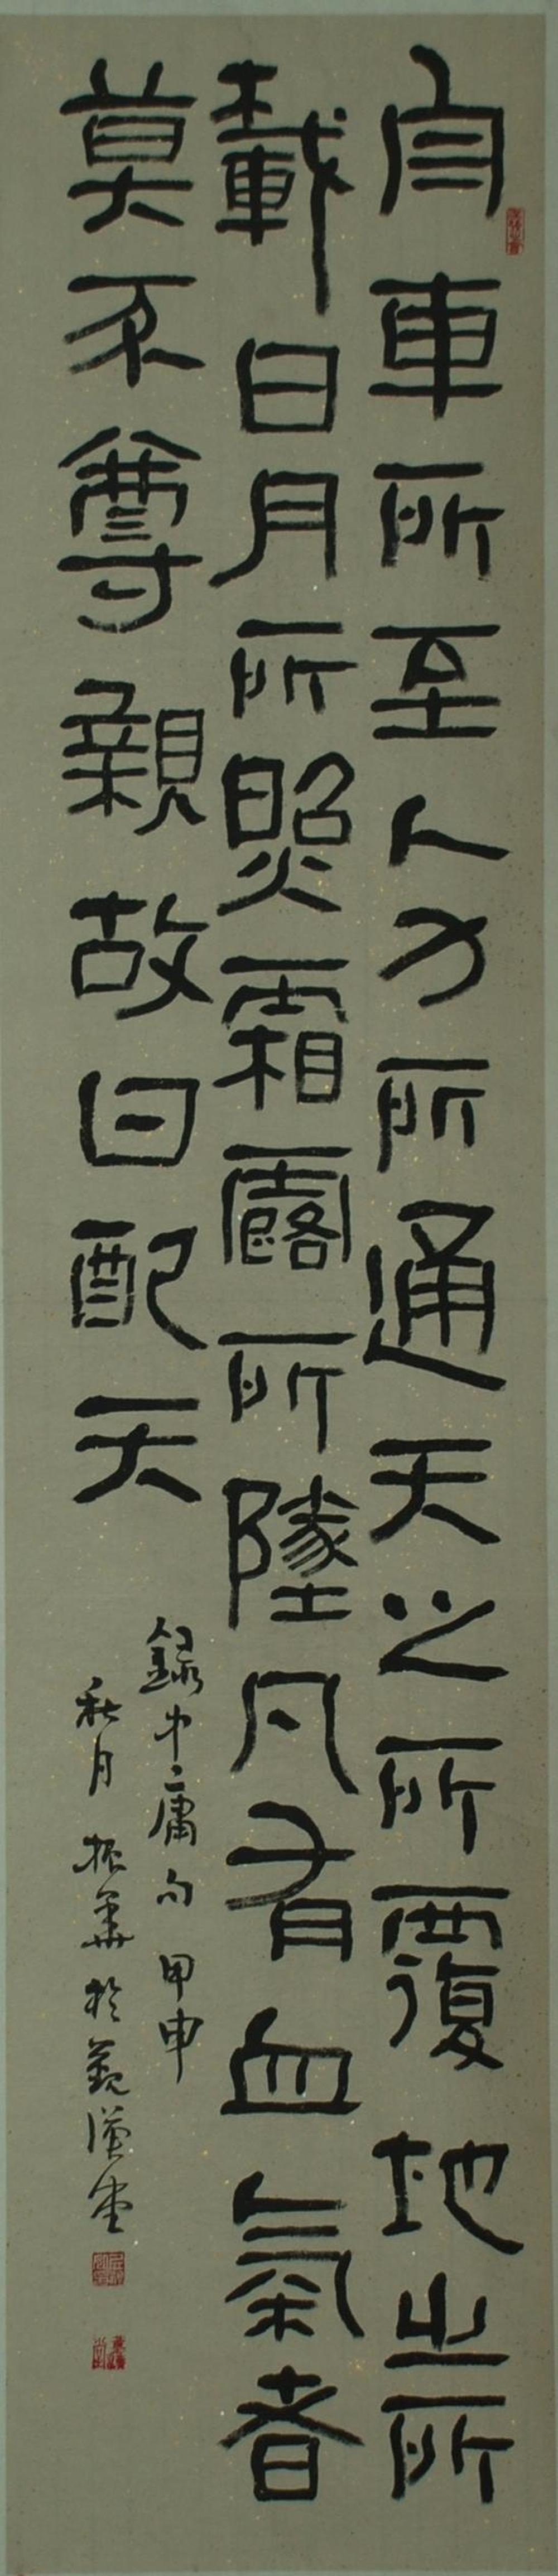 舟車所至人力所通天之所覆地之所
載日月所照霜露所墜凡有血氣者
莫不尊親故曰配天
錄中庸句甲申
秋月振華於觀漢堂